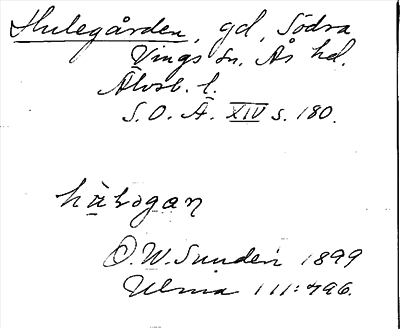 Hulegården, gd, Södra
Vings sn. Ås hd.
Älvsb. l.
S. O. Ä. XIV s. 180.
O. W. Sunden 1899
Ulma 111:496.